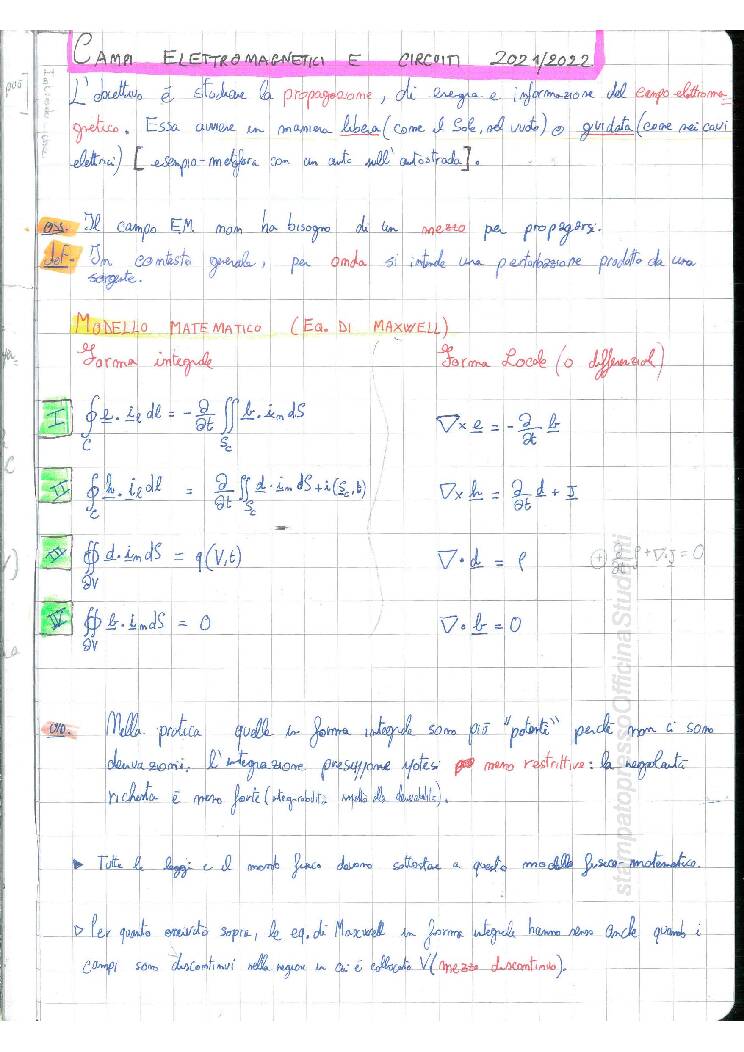 CAMPI ELETTROMAGNETICI E CIRCUITI 2021/2022
L'obiettivo è studiare la propagazione, di energia e informazione del campo elettroma
gnetico. Essa avviene in maniera libera (come il Sole, nel vuoto) o guidata (come nei cavi
elettrici) [esempio-metafora con un auto sull'autostrada].
oss. Il campo EM non ha bisogno di un mezzo per propagarsi.
def. In contesto generale, per onda si intende una perturbazione prodotta da una
sorgente.
MODELLO MATEMATICO (EQ. DI MAXWELL)
Forma integrale Forma Locale (o differenziale)
I ∮_C e · i_l dl = - ∂/∂t ∬_{S_C} b · i_n dS ∇ × e = - ∂/∂t b
II ∮_C h · i_l dl = ∂/∂t ∬_{S_C} d · i_n dS + i(S_C, t) ∇ × h = ∂/∂t d + J
III ∯_{∂V} d · i_n dS = q(V,t) ∇ · d = ρ (+) ∂/∂t ρ + ∇ · J = 0
IV ∯_{∂V} b · i_n dS = 0 ∇ · b = 0
oss. Nella pratica quelle in forma integrale sono più "potenti" perché non ci sono
derivazioni; l'integrazione presuppone ipotesi meno restrittive: la regolarità
richiesta è meno forte (integrabilità rispetto alla derivabilità).
▶ Tutte le leggi e il mondo fisico devono sottostare a questo modello fisico-matematico.
▷ Per quanto osservato sopra, le eq. di Maxwell in forma integrale hanno senso anche quando i
campi sono discontinui nella regione in cui è collocato V (mezzo discontinuo).
stampatopressoOfficinaStudenti